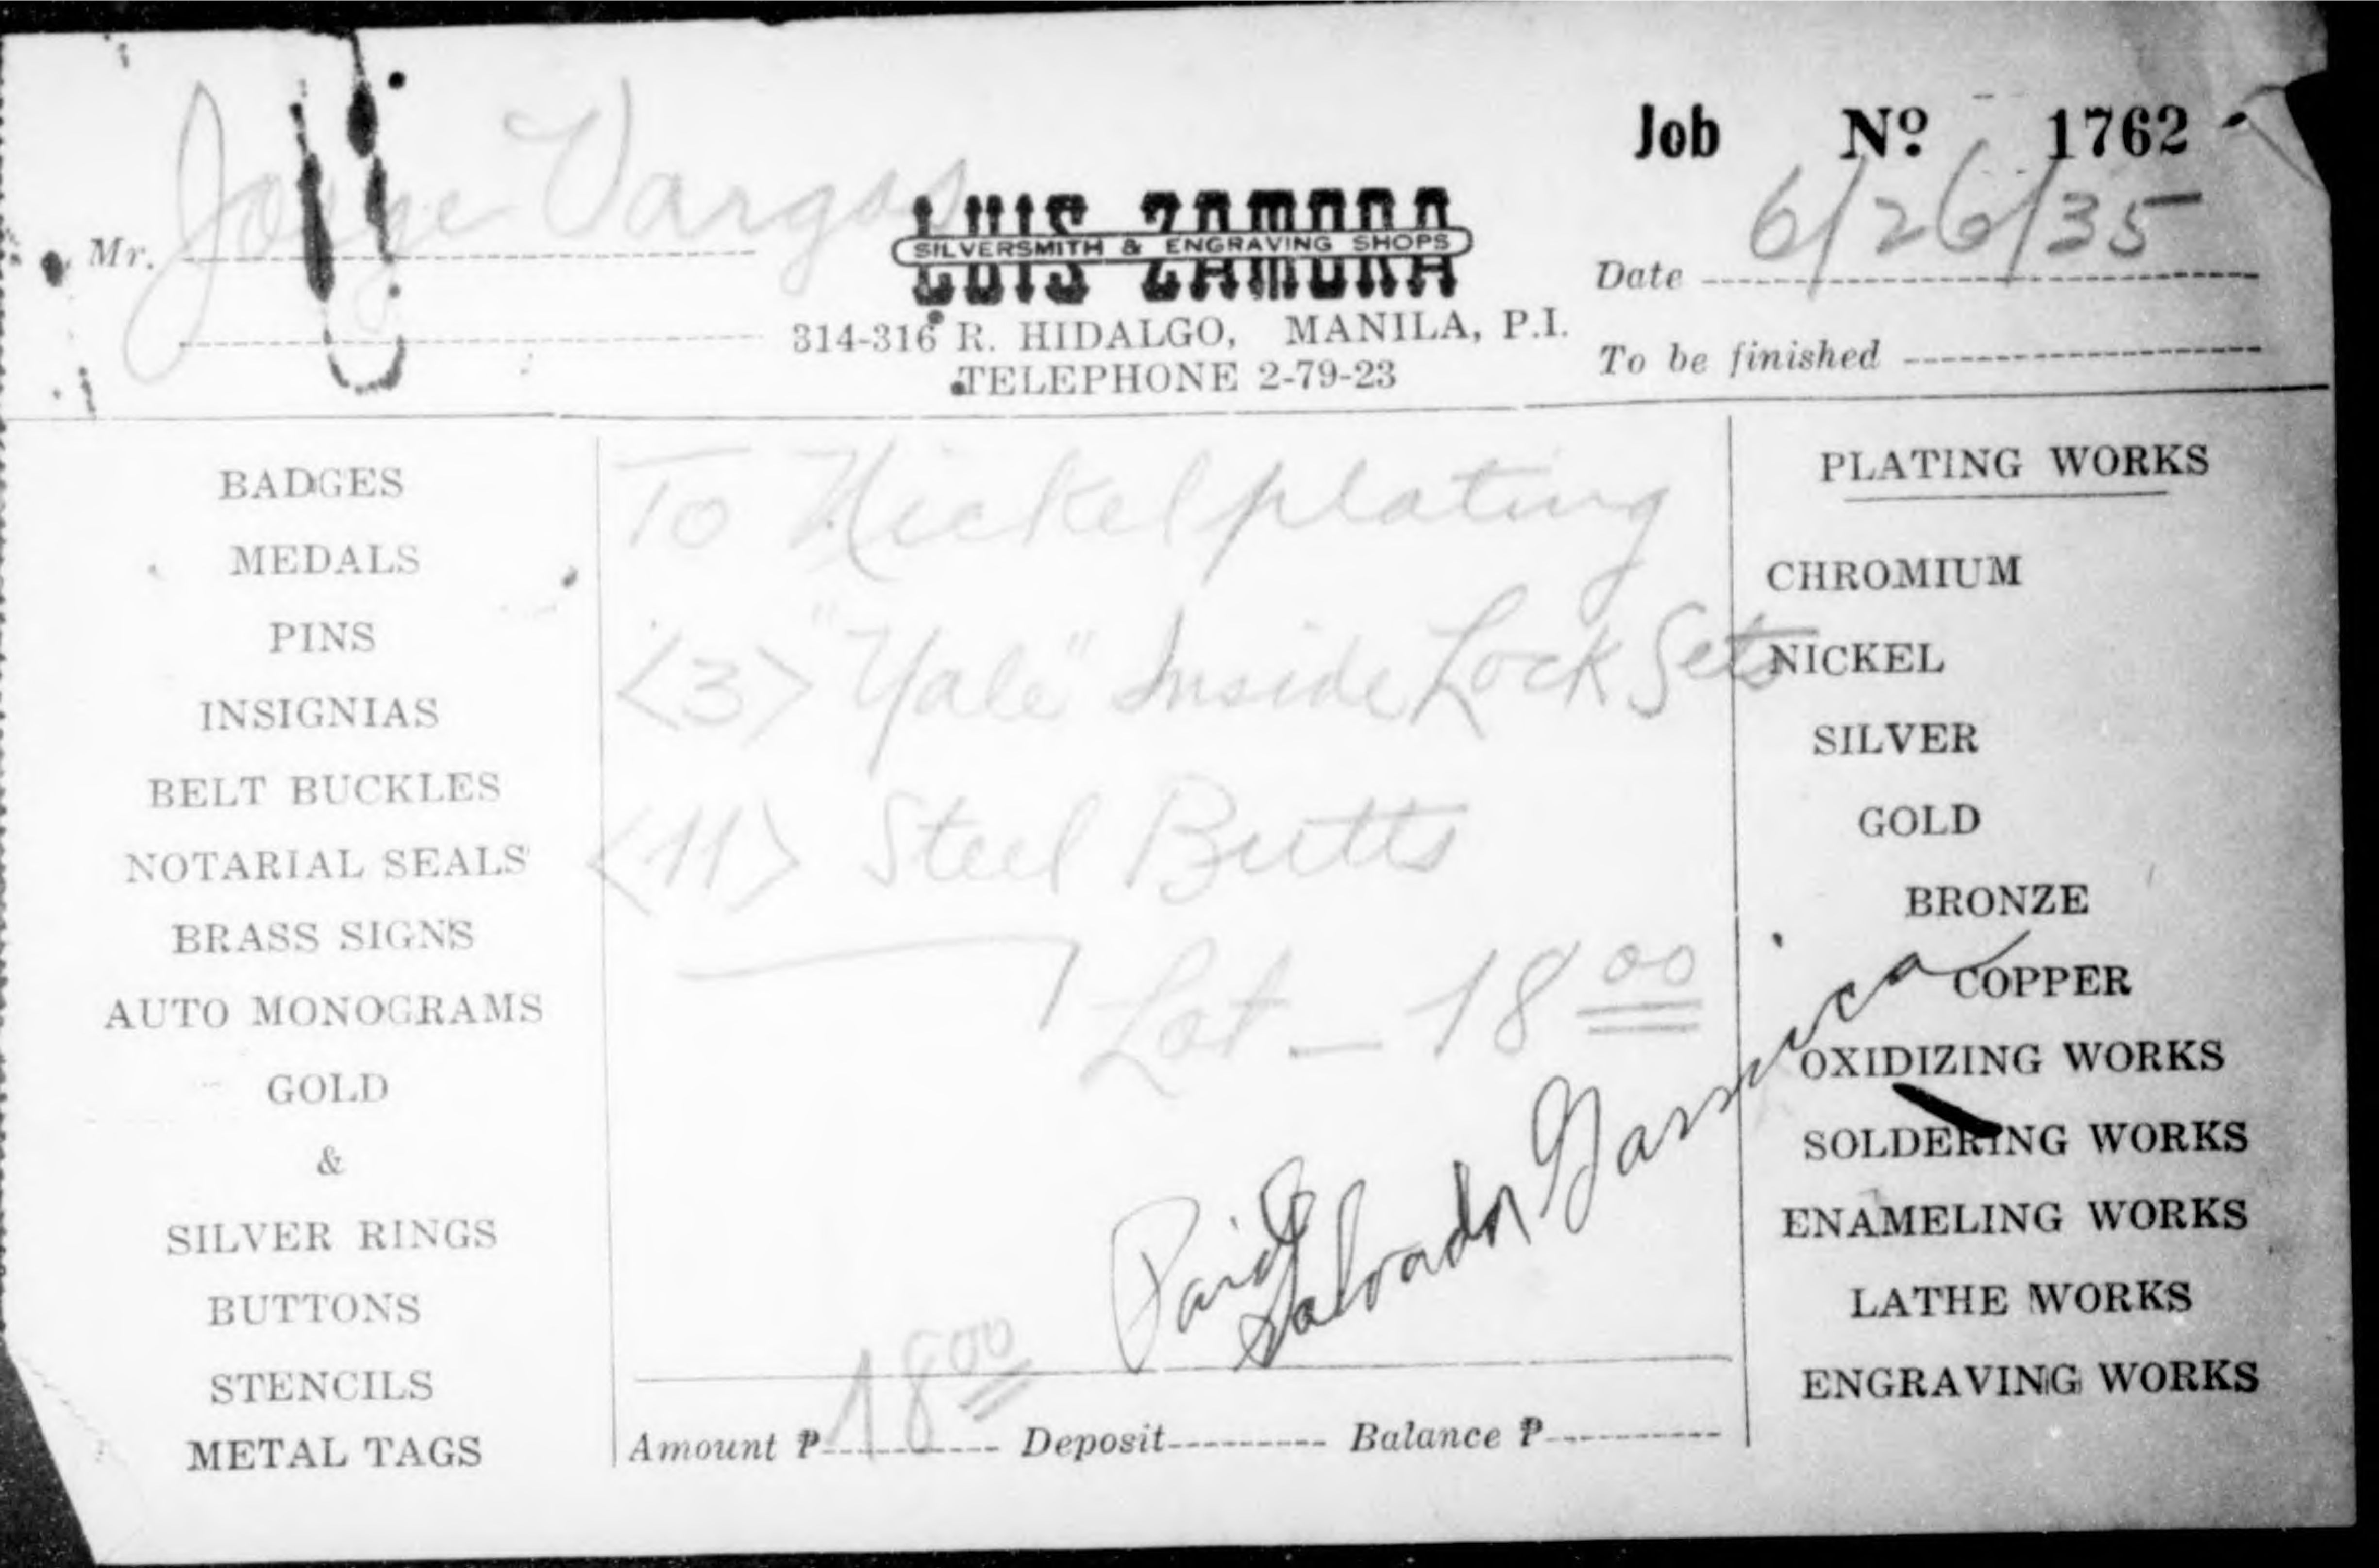 Job Nº 1762
Mr. Jorge Vargas
LUIS ZAMORA
SILVERSMITH & ENGRAVING SHOPS
314-316 R. HIDALGO, MANILA, P.I.
TELEPHONE 2-79-23
Date 6/26/35
To be finished
BADGES
MEDALS
PINS
INSIGNIAS
BELT BUCKLES
NOTARIAL SEALS
BRASS SIGNS
AUTO MONOGRAMS
GOLD
&
SILVER RINGS
BUTTONS
STENCILS
METAL TAGS
To Nickelplating
<3> "Yale" Inside Lock Sets
<11> Steel Butts
Lot - 18 00
Paid
Salvador
Amount ₱ 18 00 Deposit Balance ₱
PLATING WORKS
CHROMIUM
NICKEL
SILVER
GOLD
BRONZE
COPPER
OXIDIZING WORKS
SOLDERING WORKS
ENAMELING WORKS
LATHE WORKS
ENGRAVING WORKS